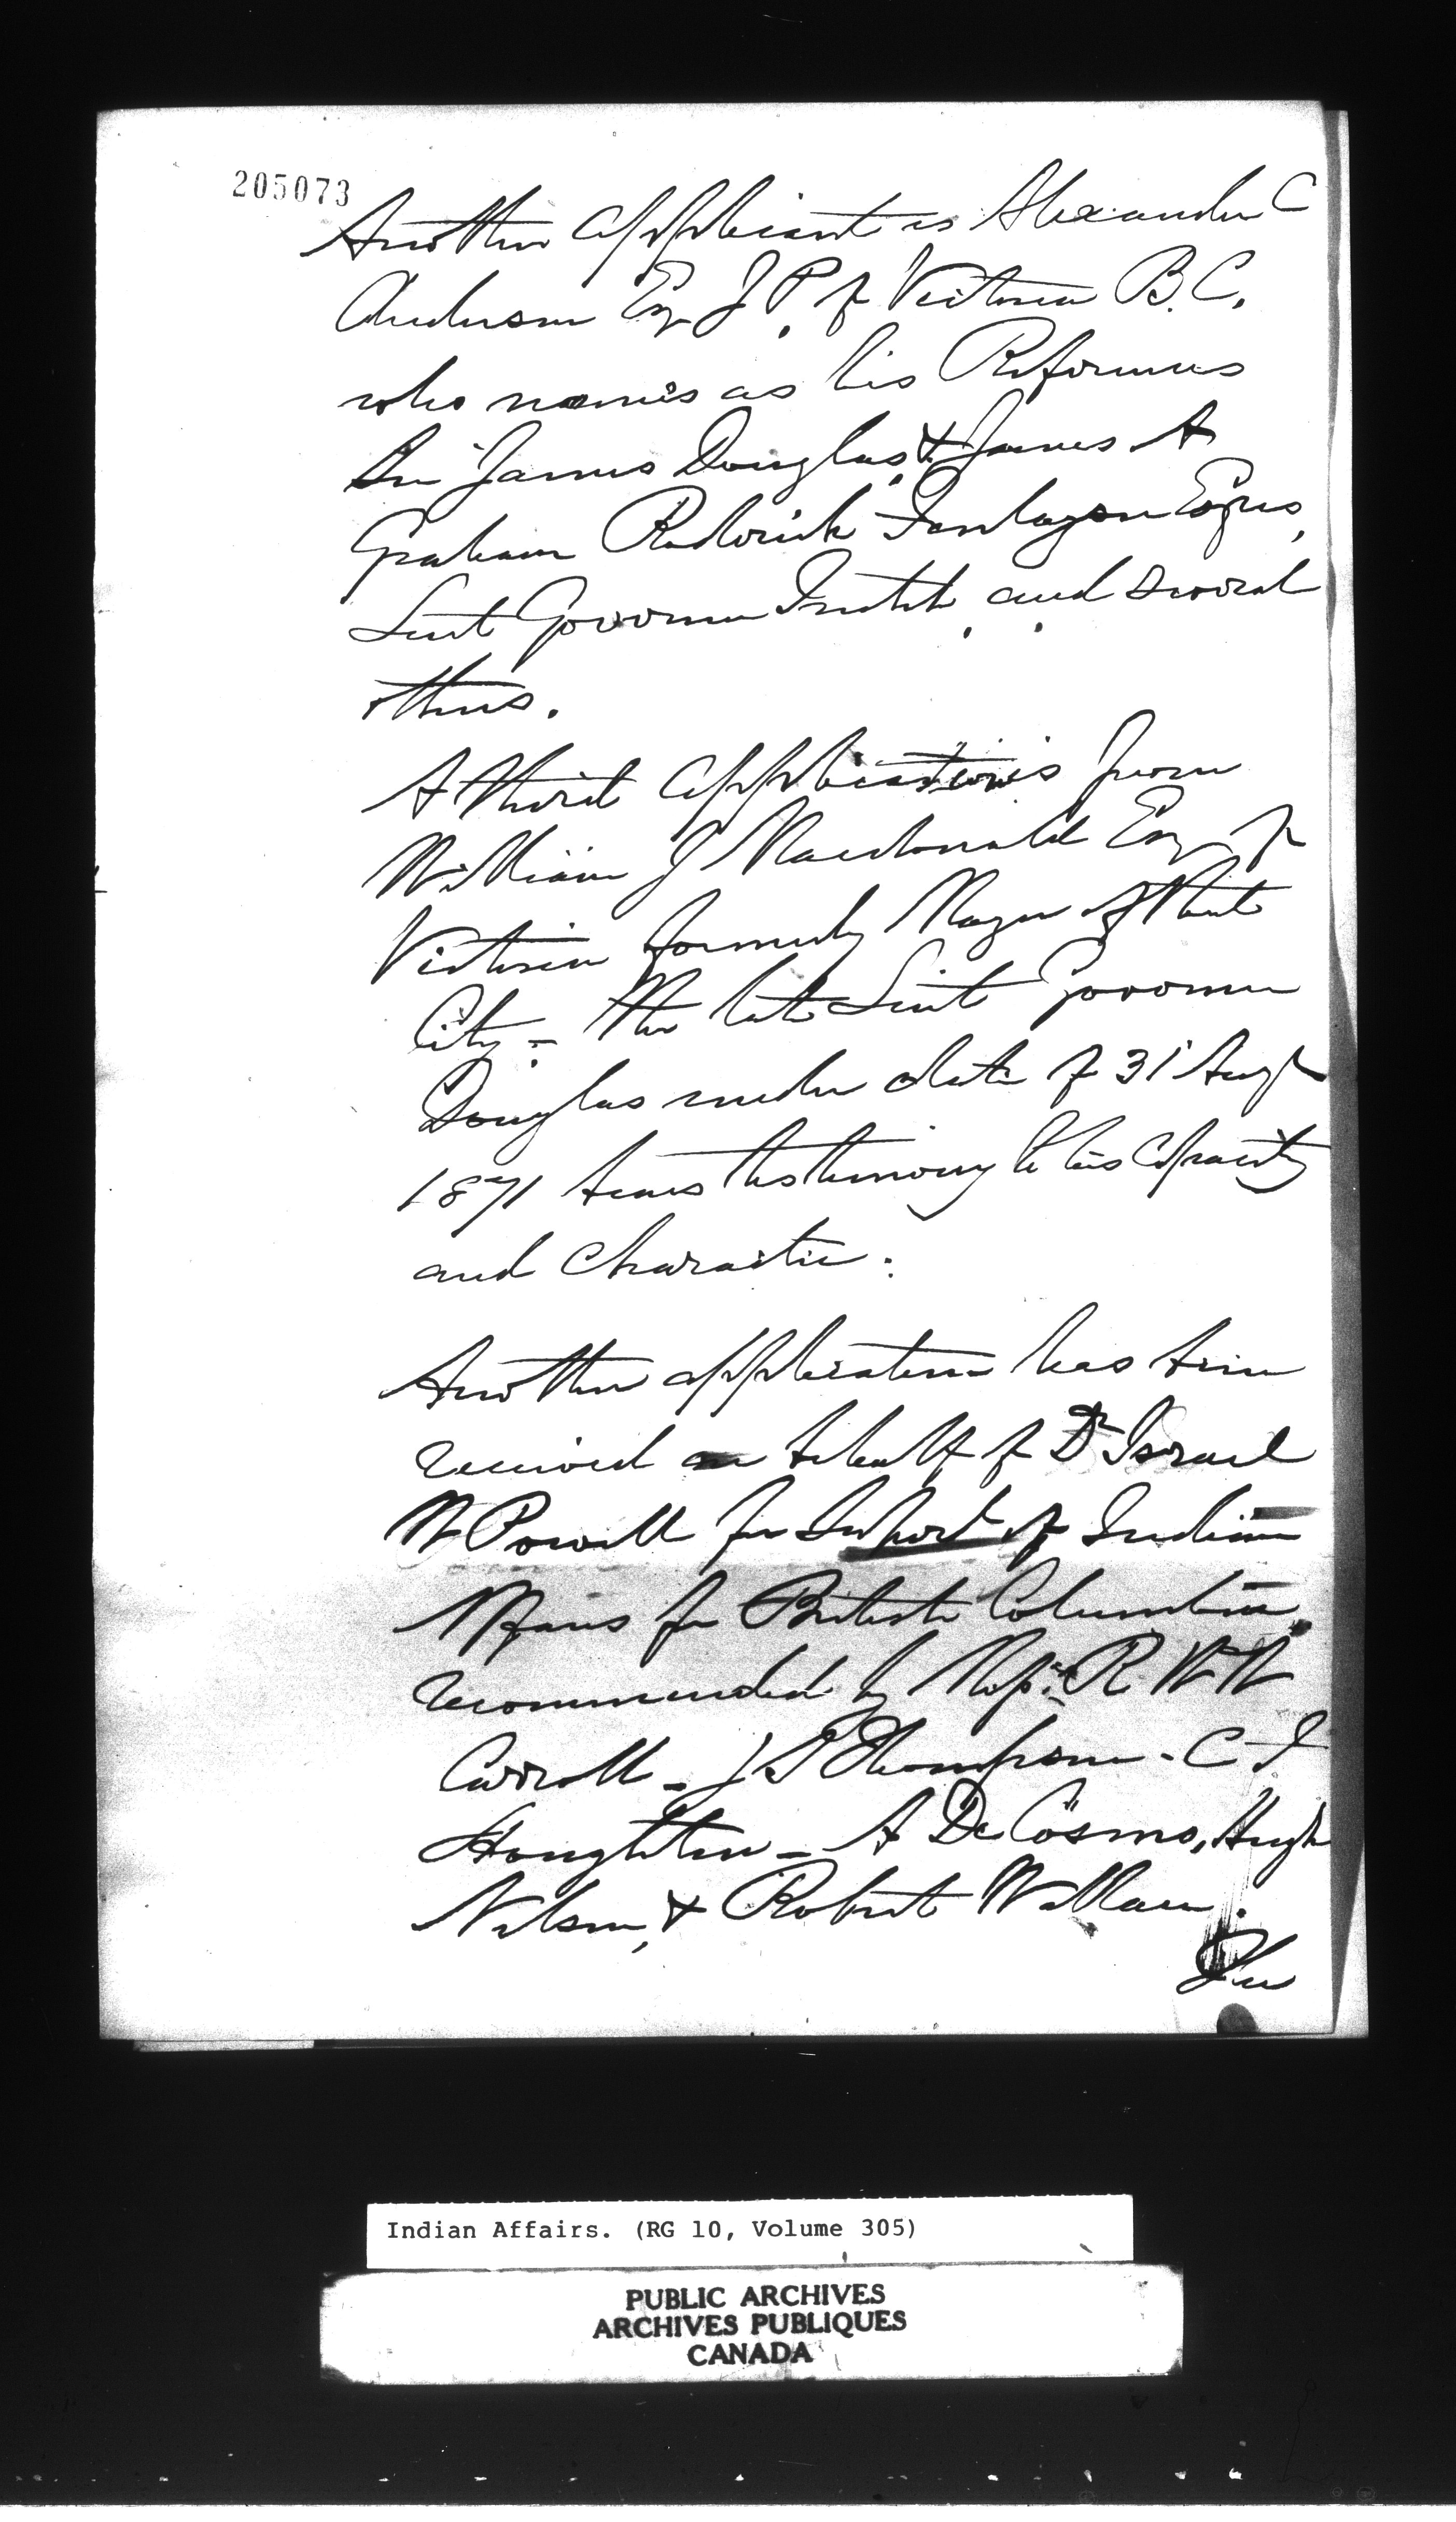 205073
Another applicant is Alexander C
Anderson Esq J.P. of Victoria B.C.
who names as his References
Sir James Douglas, & James A
Graham Roderick Finlayson Esqrs,
Lieut Governor Trutch, and several
others.
A third application is from
William J Macdonald Esq of
Victoria formerly Mayor of that
City – The late Lieut Governor
Douglas under date of 31 Augt
1871 bears testimony to his Capacity
and Character.
Another application has been
received on behalf of Dr Israel
W Powell for Supert of Indian
Affairs for British Columbia,
recommended by Messrs R W W
Carrall – J S Thompson – C F
Houghton – A De Cosmos, Hugh
Nelson, & Robert Wallace.
The
Indian Affairs. (RG 10, Volume 305)
PUBLIC ARCHIVES
ARCHIVES PUBLIQUES
CANADA